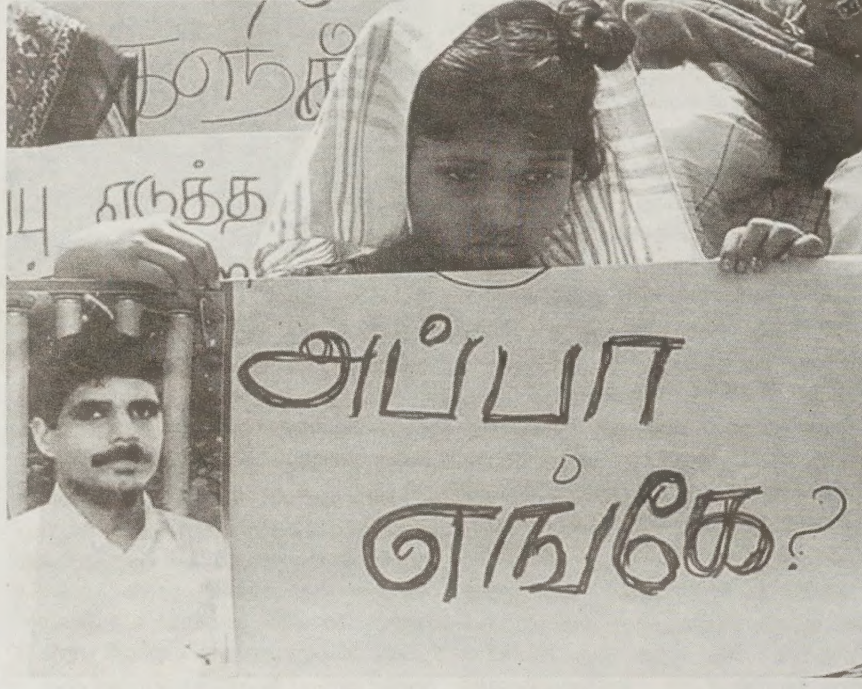 எடுத்த
அப்பா
எங்கே?